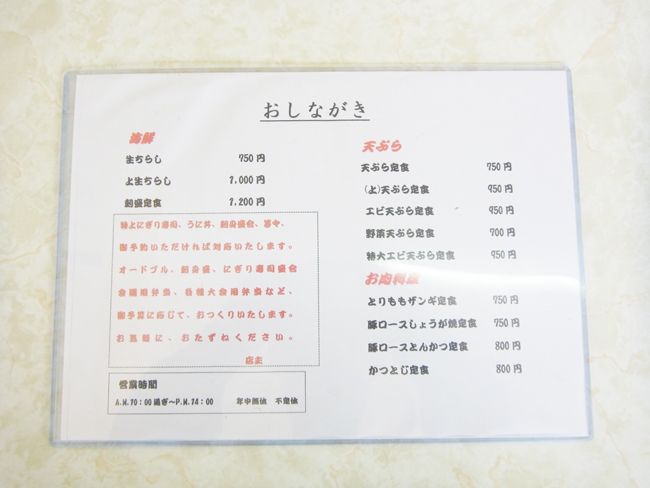 おしながき
海鮮
生ちらし 750円
上生ちらし 1,000円
刺盛定食 1,200円
特上にぎり寿司、うに丼、刺身盛合、等々、
御予約いただければ対応いたします。
オードブル、刺身盛、にぎり寿司盛合
会議用弁当、各種大会用弁当など、
御予算に応じて、おつくりいたします。
お気軽に、おたずねください。
店主
営業時間
A.M.10:00過ぎ〜P.M.14:00 年中無休 不定休
天ぷら
天ぷら定食 750円
(上)天ぷら定食 950円
エビ天ぷら定食 950円
野菜天ぷら定食 700円
特大エビ天ぷら定食 950円
お肉料理
とりももザンギ定食 750円
豚ロースしょうが焼定食 750円
豚ロースとんかつ定食 800円
かつとじ定食 800円